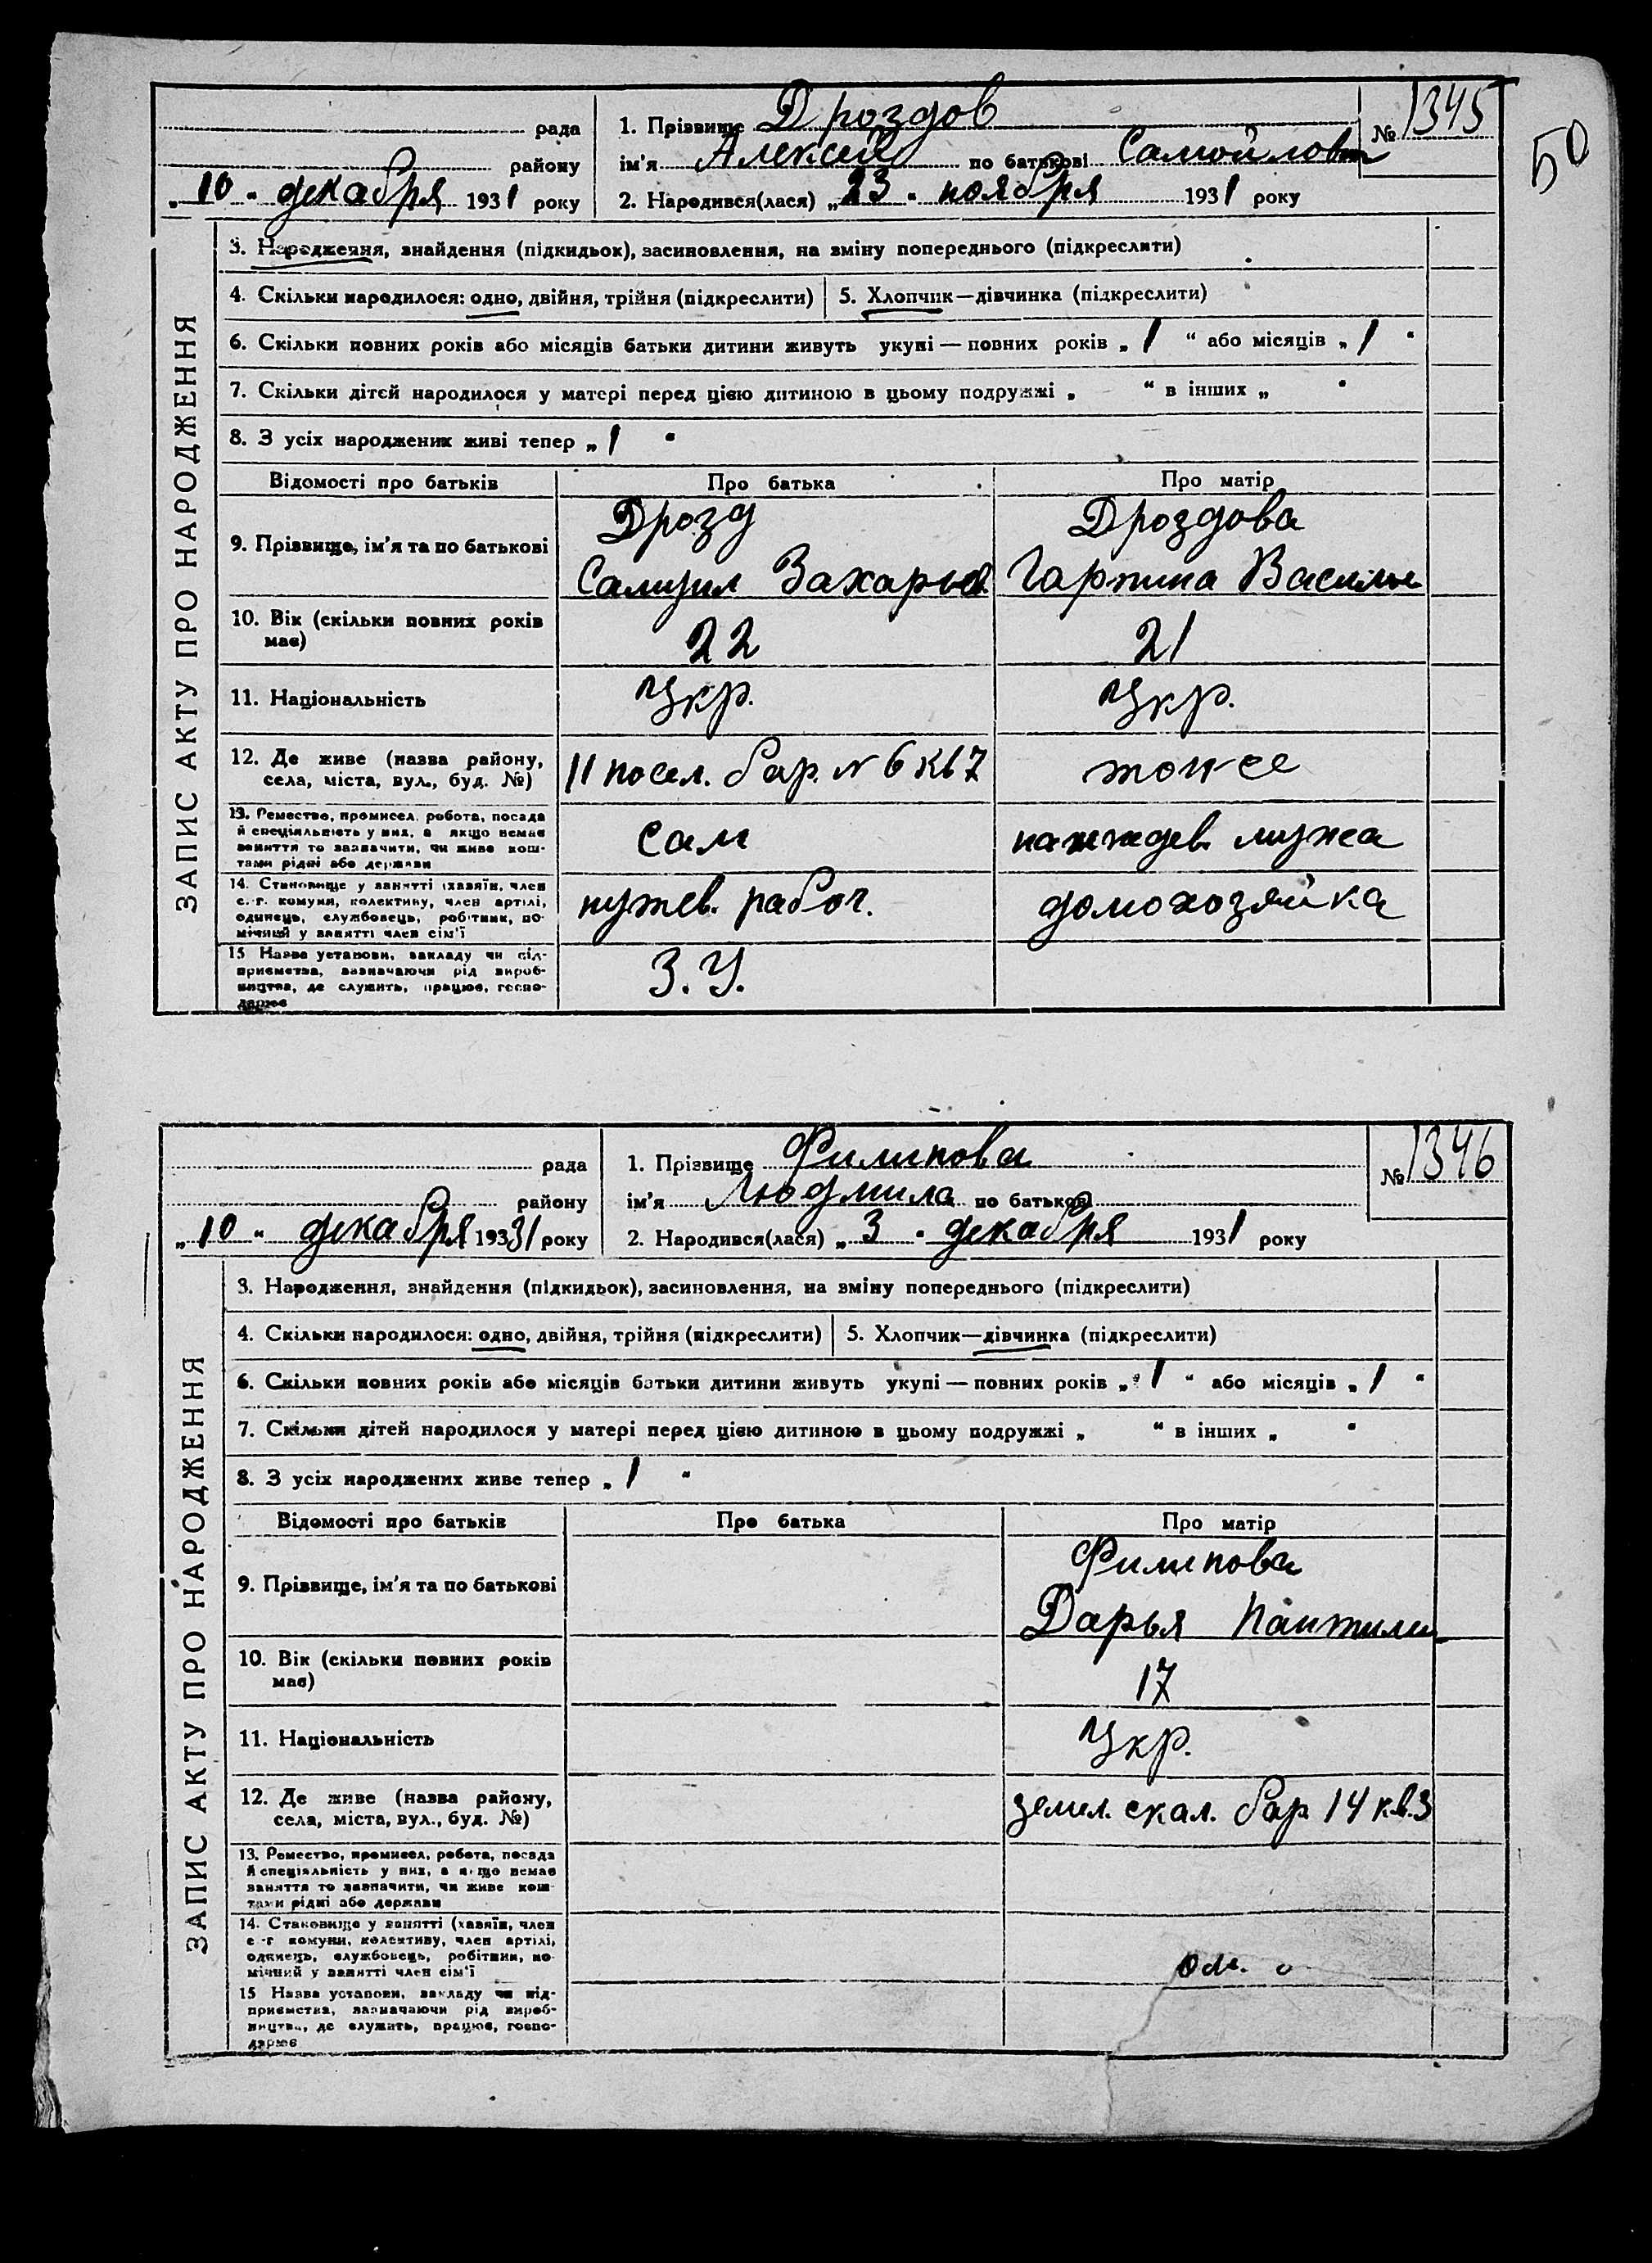 50
рада
района
"10" декабря 1931 року
1. Прізвище Дроздов
ім'я Алексей по батькові Самойлов
2. Народився(лася) "23" ноября 1931 року
№ 1345
ЗАПИС АКТУ ПРО НАРОДЖЕННЯ
3. Народження, знайдення (підкидьок), засиновлення, на зміну попереднього (підкреслити)
4. Скільки народилося: одно, двійня, трійня (підкреслити) 5. Хлопчик—дівчинка (підкреслити)
6. Скільки повних років або місяців батьки дитини живуть укупі — повних років „1“ або місяців „1“
7. Скільки дітей народилося у матері перед цією дитиною в цьому подружжі „ “ в інших „ “
8. З усіх народжених живі тепер „1“
Відомості про батьків Про батька Про матір
9. Прізвище, ім'я та по батькові
Дрозд
Самуил Захарье
Дроздова
Гарпина Василье
10. Вік (скільки повних років має)
22 21
11. Національність
Укр. Укр.
12. Де живе (назва району,
села, міста, вул., буд. №)
11 посел. бар. № 6 кв 7 тоже
13. Ремество, промисел, робота, посада
й спеціяльність у них, а якщо немає
заняття то зазначити, чи живе кош-
тами рідні або держави
сам на иждев. мужа
14. Становище у занятті (хазяїн, член
с.-г. комуни, колективу, член артілі,
одинець, службовець, робітник, по-
мічний у занятті член сім'ї
рабоч. домохозяйка
15 Назва установи, закладу чи під-
приємства, зазначаючи рід вироб-
ництва, де служить, працює, госпо-
дарює
З. У.
рада
району
"10" декабря 19331 року
1. Прізвище Филипова
ім'я Людмила по батькові
2. Народився(лася) "3" декабря 1931 року
№ 1346
ЗАПИС АКТУ ПРО НАРОДЖЕННЯ
3. Народження, знайдення (підкидьок), засиновлення, на зміну попереднього (підкреслити)
4. Скільки народилося: одно, двійня, трійня (підкреслити) 5. Хлопчик—дівчинка (підкреслити)
6. Скільки повних років або місяців батьки дитини живуть укупі — повних років „1“ або місяців „1“
7. Скільки дітей народилося у матері перед цією дитиною в цьому подружжі „ “ в інших „ “
8. З усіх народжених живе тепер „1“
Відомості про батьків Про батька Про матір
9. Прізвище, ім'я та по батькові
Филипова
Дарья Пантили
10. Вік (скільки повних років має)
17
11. Національність
Укр.
12. Де живе (назва району,
села, міста, вул., буд. №)
земел. скал. бар 14 кв. 3
13. Ремество, промисел, робота, посада
й спеціяльність у них, а якщо немає
заняття то зазначити, чи живе кош-
тами рідні або держави
14. Становище у занятті (хазяїн, член
с.-г. комуни, колективу, член артілі,
одинець, службовець, робітник, по-
мічний у занятті член сім'ї
15 Назва установи, закладу чи під-
приємства, зазначаючи рід вироб-
ництва, де служить, працює, госпо-
дарює